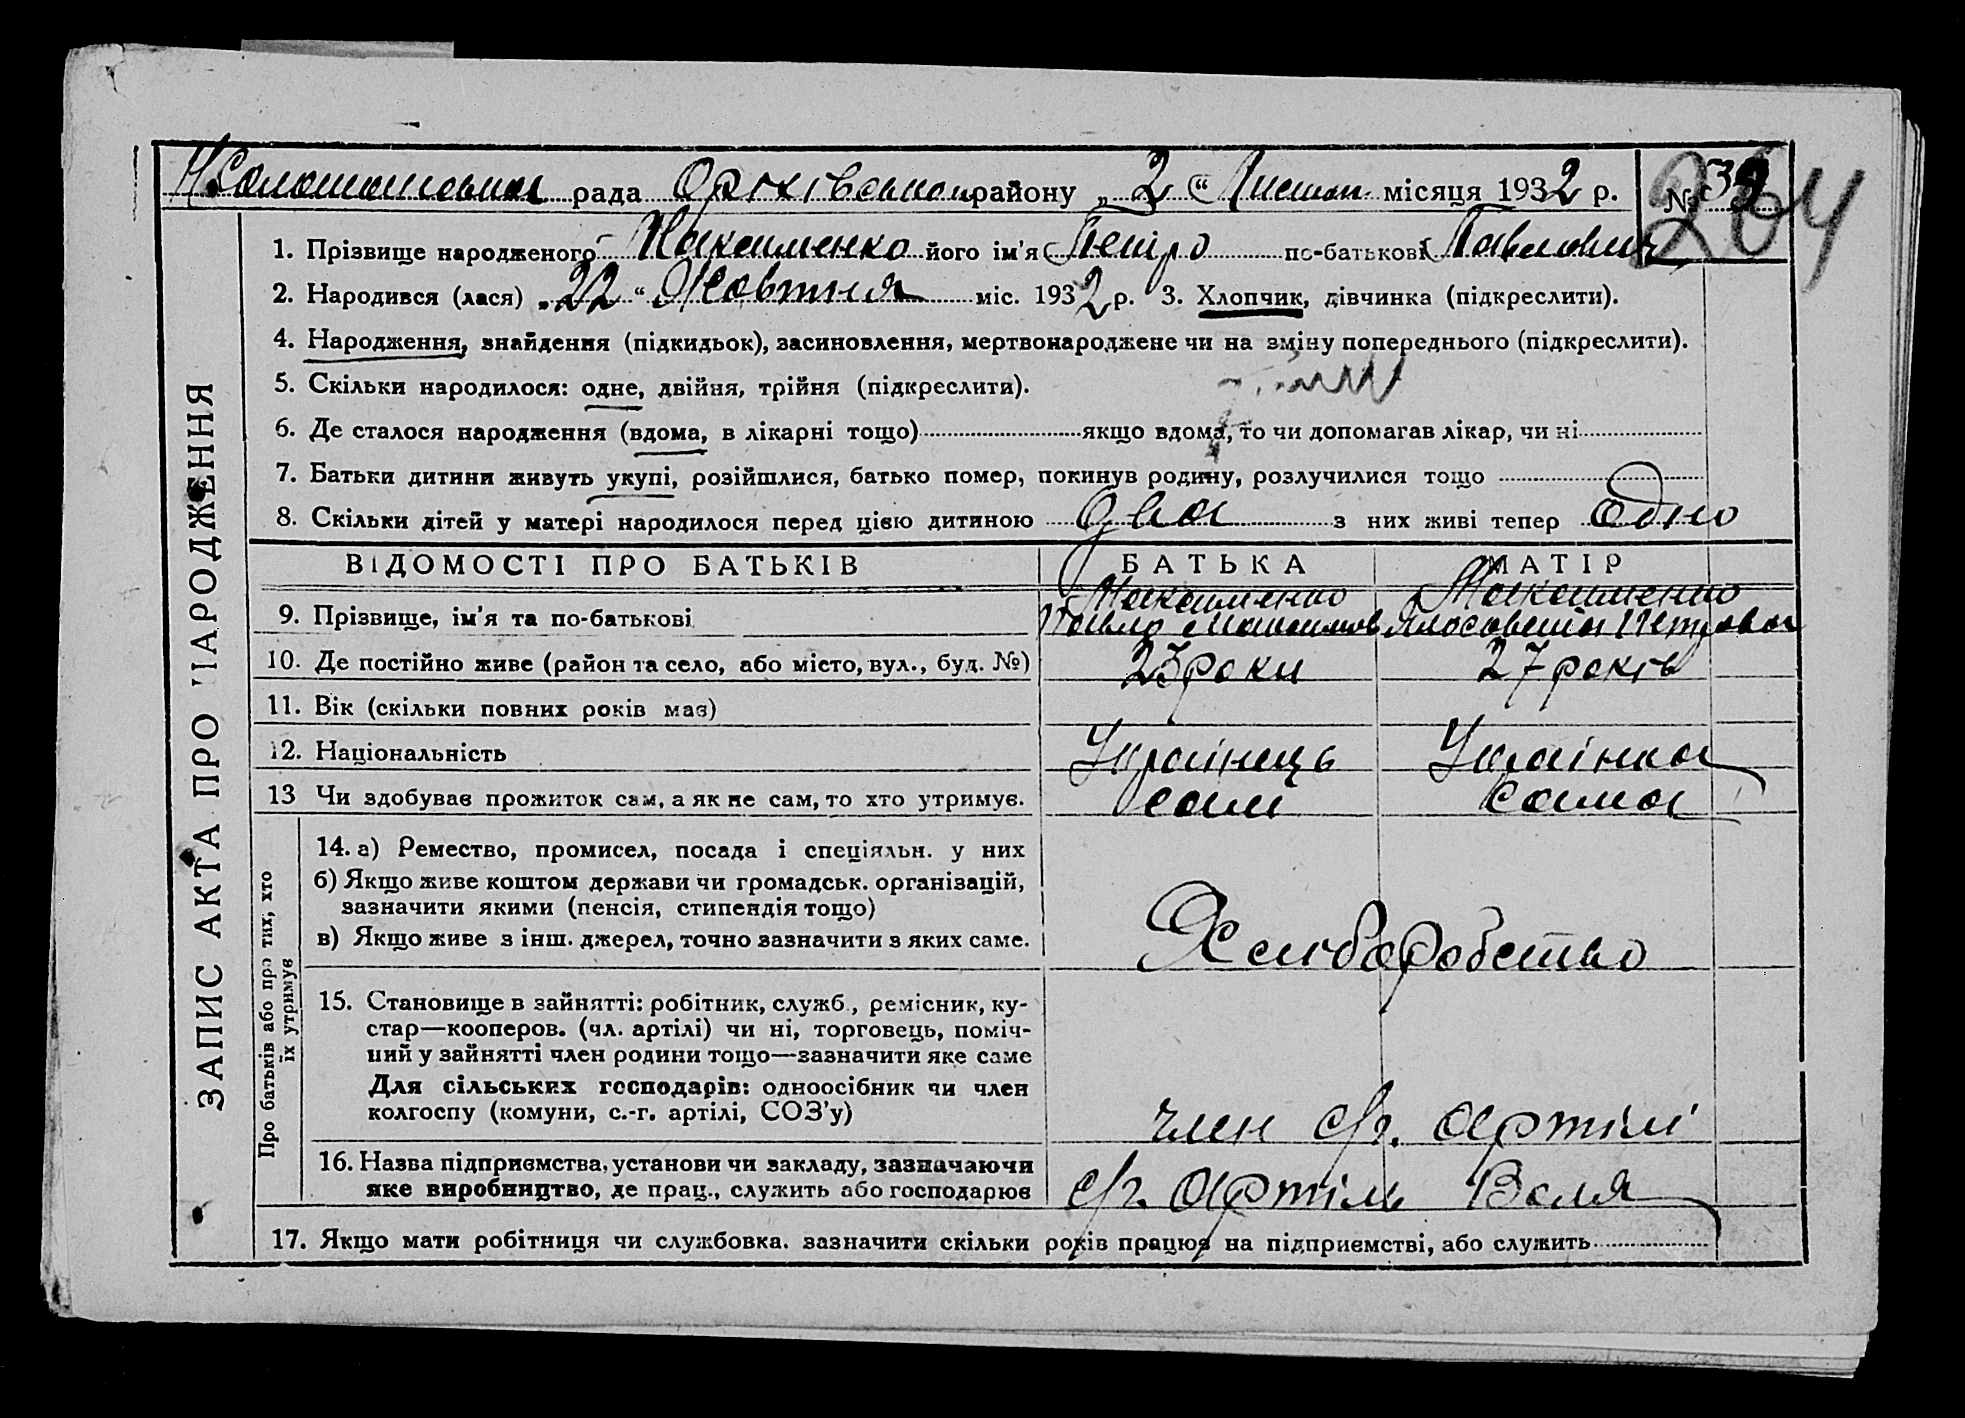 рада Оріхівського району „ 2 “ Листоп. місяця 1932 р. № 39
264
1. Прізвище народженого Максименко його ім'я Петро по-батькові Павлович
2. Народився (лася) „ 22 “ Жовтня міс. 1932 р. 3. Хлопчик, дівчинка (підкреслити).
4. Народження, знайдення (підкидьок), засиновлення, мертвонароджене чи на зміну попереднього (підкреслити).
5. Скільки народилося: одне, двійня, трійня (підкреслити).
6. Де сталося народження (вдома, в лікарні тощо) якщо вдома, то чи допомагав лікар, чи ні
7. Батьки дитини живуть укупі, розійшлися, батько помер, покинув родину, розлучилися тощо
8. Скільки дітей у матері народилося перед цією дитиною два з них живі тепер одно
ВІДОМОСТІ ПРО БАТЬКІВ БАТЬКА МАТІР
9. Прізвище, ім'я та по-батькові Максименко Павло Максимов Максименко Петрова
10. Де постійно живе (район та село, або місто, вул., буд. №) 23 роки 27 років
11. Вік (скільки повних років має)
12. Національність Українець Українка
13 Чи здобуває прожиток сам, а як не сам, то хто утримує. сам сама
14. а) Ремество, промисел, посада і спеціяльн. у них
б) Якщо живе коштом держави чи громадськ. організацій,
зазначити якими (пенсія, стипендія тощо)
в) Якщо живе з інш. джерел, точно зазначити з яких саме. Хліборобство
15. Становище в зайнятті: робітник, служб., ремісник, ку-
стар—кооперов. (чл. артілі) чи ні, торговець, поміч-
ний у зайнятті член родини тощо—зазначити яке саме
Для сільських господарів: одноосібник чи член
колгоспу (комуни, с.-г. артілі, СОЗ'у) член с/г. артілі
16. Назва підприємства, установи чи закладу, зазначаючи
яке виробництво, де прац., служить або господарює с/г. артіль Воля
17. Якщо мати робітниця чи службовка. зазначити скільки років працює на підприємстві, або служить
ЗАПИС АКТА ПРО НАРОДЖЕННЯ
Про батьків або про тих, хто
їх утримує